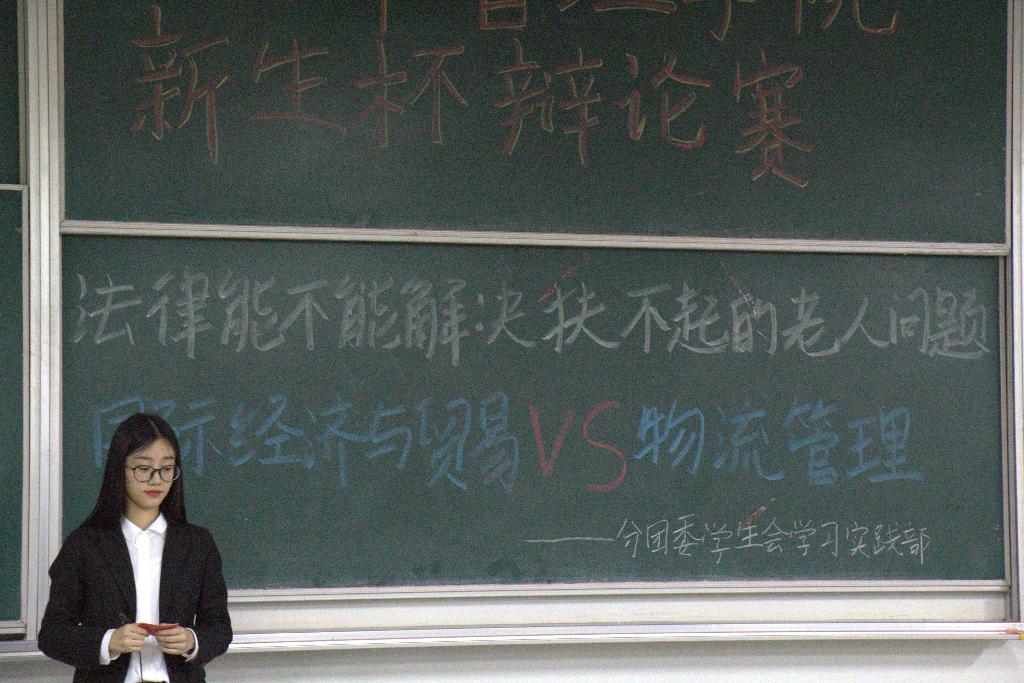 管理学院
新生杯辩论赛
法律能不能解决扶不起的老人问题
国际经济与贸易VS物流管理
——分团委学生会学习实践部